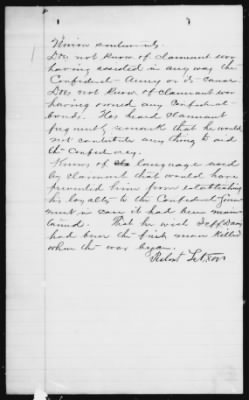 Union sentiments.
Does not know of claimant ever
having assisted in any way the
Confederate Army or its cause
Does not know of claimant ever
having owned any Confederate
bonds. Has heard claimant
frequently remark that he would
not contribute any thing to aid
the Confederacy.
Knows of language used
by claimant that would have
prevented him from establishing
his loyalty to the Confederate Govern
ment in case it had been main
tained. That he wish Jeff Davis
had been the first man killed
when the war began.
Robert